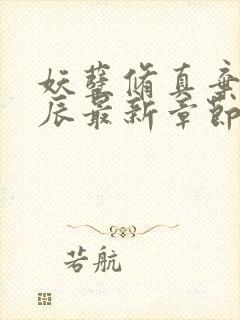 妖孽修真弃
辰最新章节
若航